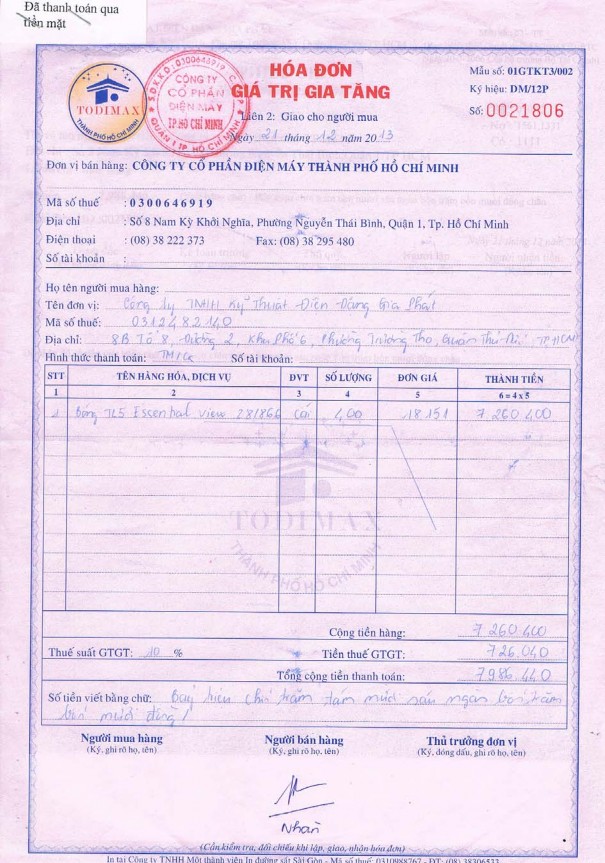 Đã thanh toán qua
tiền mặt
TODIMAX
THÀNH PHỐ HỒ CHÍ MINH
S.Đ.K.K.D: 0300646919
CÔNG TY
CỔ PHẦN
ĐIỆN MÁY
TP.HỒ CHÍ MINH
QUẬN 1 TP. HỒ CHÍ MINH
HÓA ĐƠN
GIÁ TRỊ GIA TĂNG
Liên 2: Giao cho người mua
Ngày 21 tháng 12 năm 2013
Mẫu số: 01GTKT3/002
Ký hiệu: DM/12P
Số: 0021806
Đơn vị bán hàng: CÔNG TY CỔ PHẦN ĐIỆN MÁY THÀNH PHỐ HỒ CHÍ MINH
Mã số thuế : 0300646919
Địa chỉ : Số 8 Nam Kỳ Khởi Nghĩa, Phường Nguyễn Thái Bình, Quận 1, Tp. Hồ Chí Minh
Điện thoại : (08) 38 222 373 Fax: (08) 38 295 480
Số tài khoản :
Họ tên người mua hàng:
Tên đơn vị: Công ty TNHH Kỹ Thuật Điện Đăng Gia Phát
Mã số thuế: 0312482140
Địa chỉ: 8B Tổ 8, Đường 2, Khu Phố 6, Phường Trường Thọ, Quận Thủ Đức, TP HCM
Hình thức thanh toán: TM/CK Số tài khoản:
STT TÊN HÀNG HÓA, DỊCH VỤ ĐVT SỐ LƯỢNG ĐƠN GIÁ THÀNH TIỀN
1 2 3 4 5 6 = 4 x 5
1 Bóng TL5 Essential view 28/866 cái 400 18.151 7 260 400
TODIMAX
THÀNH PHỐ HỒ CHÍ MINH
Cộng tiền hàng: 7 260 400
Thuế suất GTGT: 10 % Tiền thuế GTGT: 726.040
Tổng cộng tiền thanh toán: 7986.440
Số tiền viết bằng chữ: Bảy triệu chín trăm tám mươi sáu ngàn bốn trăm
bốn mươi đồng
Người mua hàng Người bán hàng Thủ trưởng đơn vị
(Ký, ghi rõ họ, tên) (Ký, ghi rõ họ, tên) (Ký, đóng dấu, ghi rõ họ, tên)
Nhàn
(Cần kiểm tra, đối chiếu khi lập, giao, nhận hóa đơn)
In tại Công ty TNHH Một thành viên In đường sắt Sài Gòn - Mã số thuế: 0310988767 - ĐT: (08) 38306533